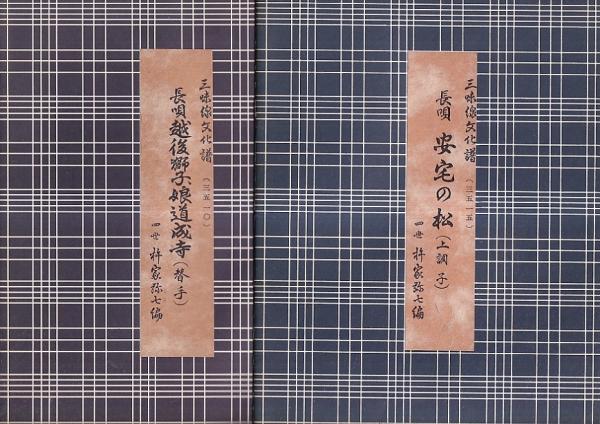 三味線文化譜
(三五一五)
長唄 安宅の松(上調子)
四世 杵家弥七編
三味線文化譜
(三五一〇)
長唄 越後獅子娘道成寺(替手)
四世 杵家弥七編